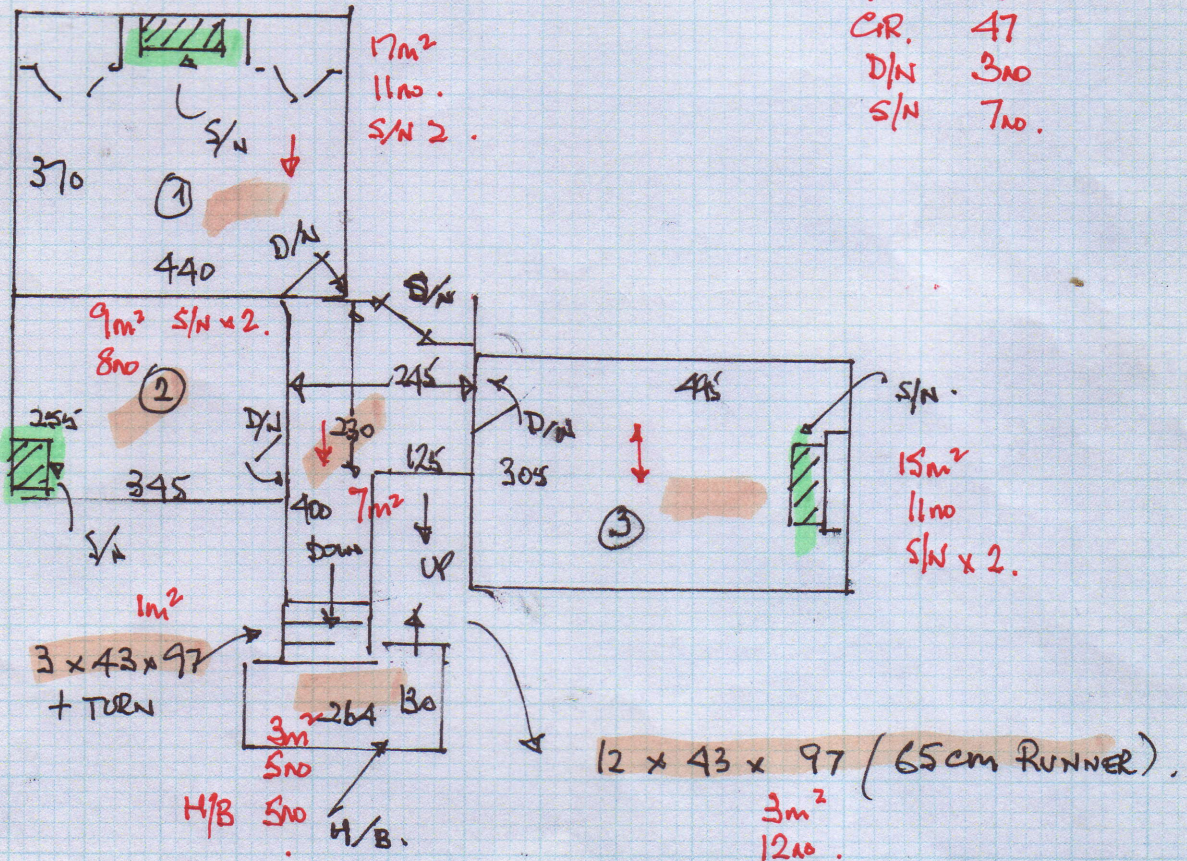 17m²
11no.
S/N 2.
G.R. 47
D/N 3no
S/N 7no.
S/N
370
1
440
D/N
S/N
9m² S/N x 2.
8no
2
255
345
S/N
D/N
245
230
125
400
7m²
DOWN
UP
D/N
495
305
3
S/N.
15m²
11no
S/N x 2.
1m²
3 x 43 x 97
+ TURN
264
130
3m²
5no
H/B 5no
H/B.
12 x 43 x 97 (65cm RUNNER).
3m²
12no.